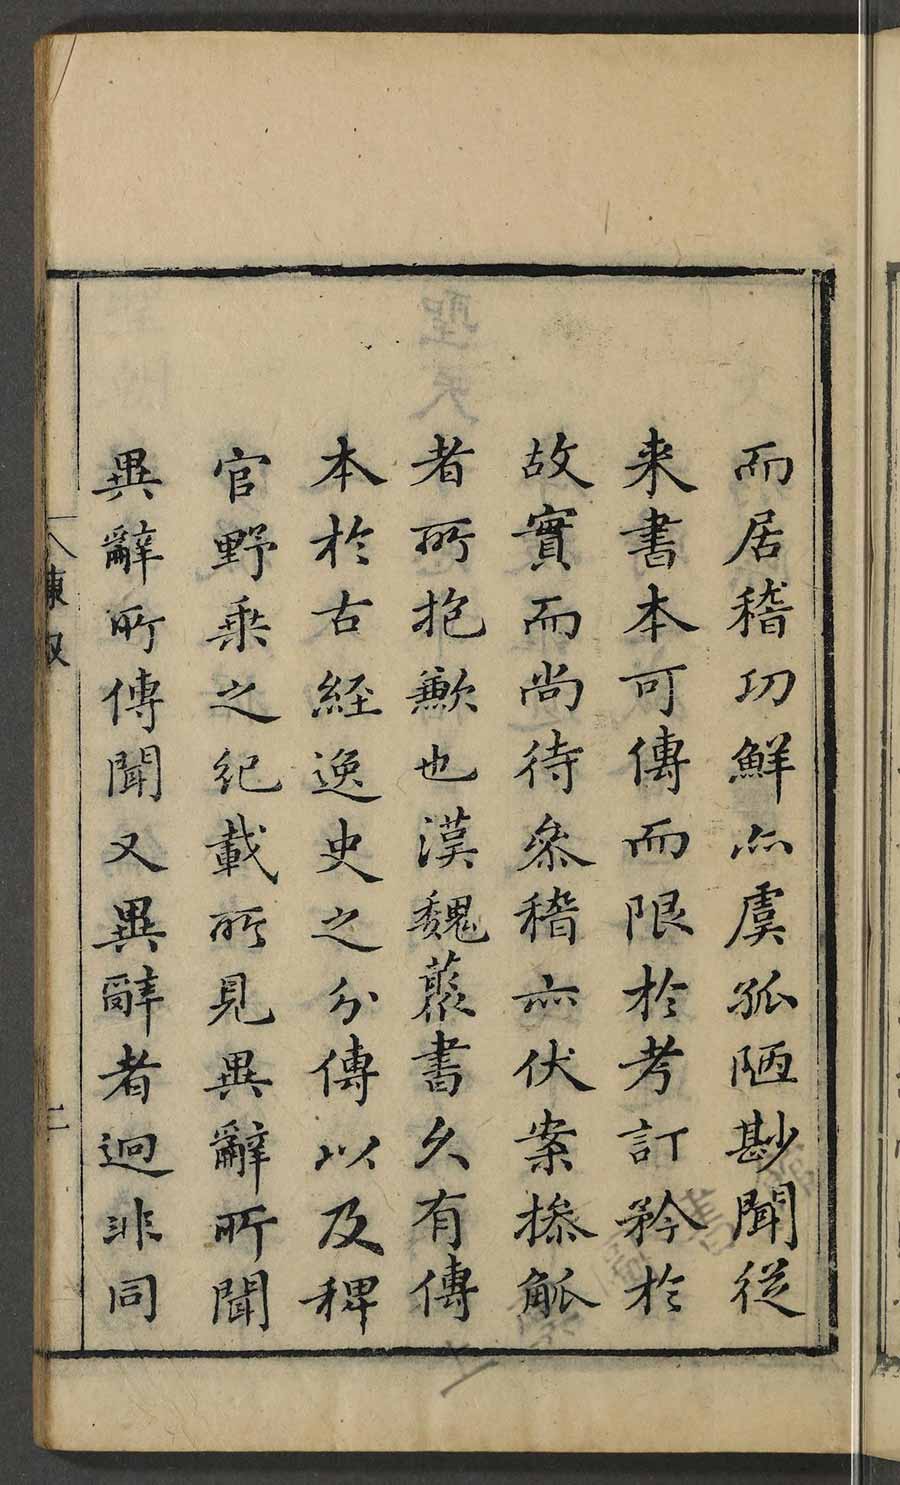 而居稽功鮮亦虞孤陋尠聞従
来書本可傳而限於考訂矜於
故實而尚待叅稽亦伏案搽觚
者所抱歉也漢魏叢書久有傳
本於古経逸史之分傳以及稗
官野乗之紀載所見異辭所聞
異辭所傳聞又異辭者迥非同
陳叙
二